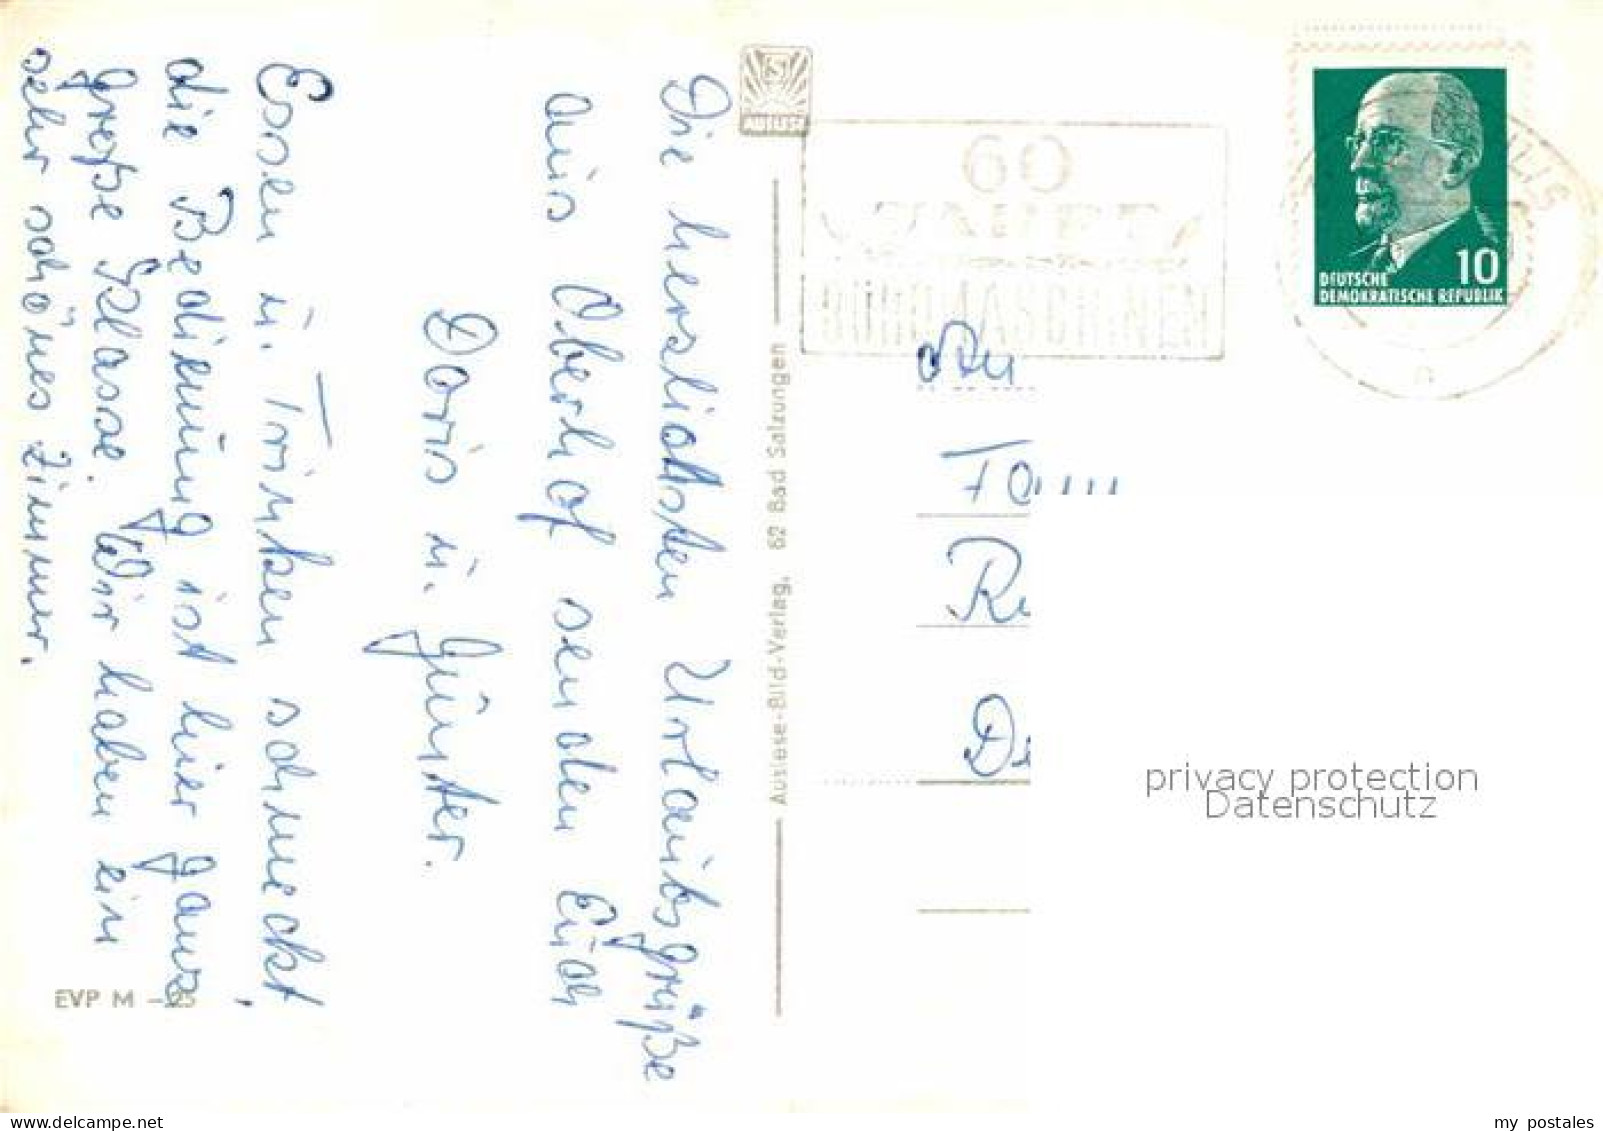 Die herzlichsten Urlaubsgrüße
aus Oberhof senden Euch
Doris u. Günter.
Essen u. Trinken schmeckt,
die Bedienung ist hier ganz
große Klasse. Wir haben ein
sehr schönes Zimmer.
EVP M –,25
Auslese-Bild-Verlag, 62 Bad Salzungen
60
JAHRE
BÜROMASCHINEN
10
DEUTSCHE
DEMOKRATISCHE REPUBLIK
An
Fam
privacy protection
Datenschutz
www.delcampe.net
my_postales